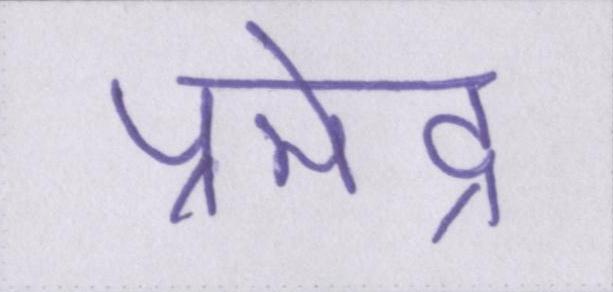 प्रमेद्र